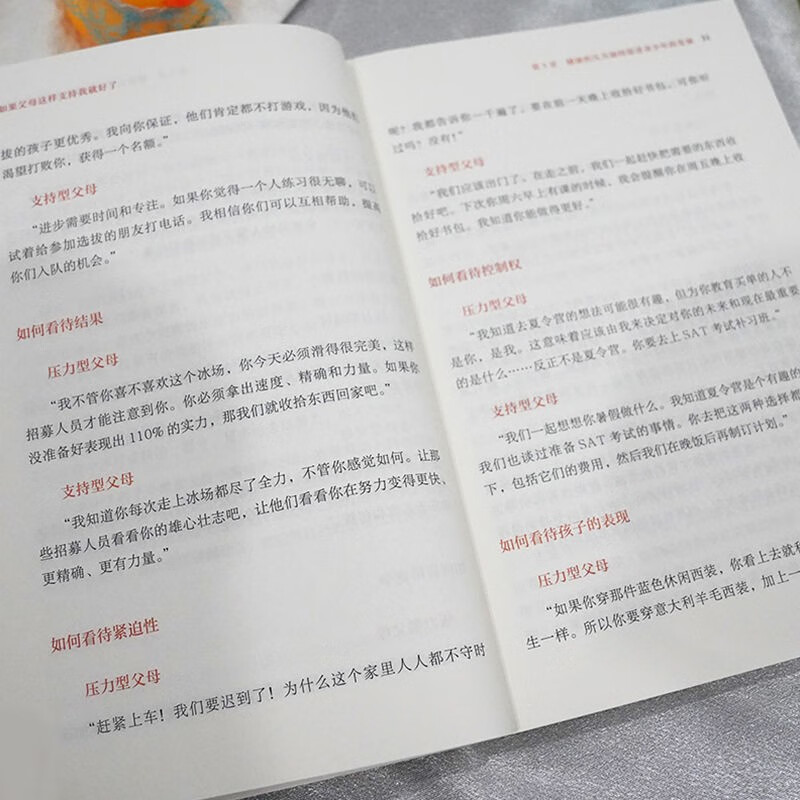 如果父母这样支持我就好了
拔的孩子更优秀。我向你保证，他们肯定都不打游戏，因为他们
渴望打败你，获得一个名额。”
支持型父母
“进步需要时间和专注。如果你觉得一个人练习很无聊，可以
试着给参加选拔的朋友打电话。我相信你们可以互相帮助，提高
你们入队的机会。”
如何看待结果
压力型父母
“我不管你喜不喜欢这个冰场，你今天必须滑得很完美，这样
招募人员才能注意到你。你必须拿出速度、精确和力量。如果你
没准备好表现出 110% 的实力，那我们就收拾东西回家吧。”
支持型父母
“我知道你每次走上冰场都尽了全力，不管你感觉如何。让那
些招募人员看看你的雄心壮志吧，让他们看看你在努力变得更快、
更精确、更有力量。”
如何看待紧迫性
压力型父母
“赶紧上车！我们要迟到了！为什么这个家里人人都不守时
呢？我都告诉你一千遍了，要在前一天晚上收拾好书包。可你听
过吗？没有！”
支持型父母
“我们应该出门了。在走之前，我们一起赶快把需要的东西收
拾好吧。下次你周六早上有课的时候，我会提醒你在周五晚上收
拾好书包。我知道你能做得更好。”
如何看待控制权
压力型父母
“我知道去夏令营的想法可能很有趣，但为你教育买单的人不
是你，是我。这意味着应该由我来决定对你的未来和现在最重要
的是什么……反正不是夏令营。你要去上 SAT 考试补习班。”
支持型父母
“我们一起想想你暑假做什么。我知道夏令营是个有趣的
我们也谈过准备 SAT 考试的事情。你去把这两种选择都
下，包括它们的费用，然后我们在晚饭后再制订计划。”
如何看待孩子的表现
压力型父母
“如果你穿那件蓝色休闲西装，你看上去就和
生一样。所以你要穿意大利羊毛西装，加上一